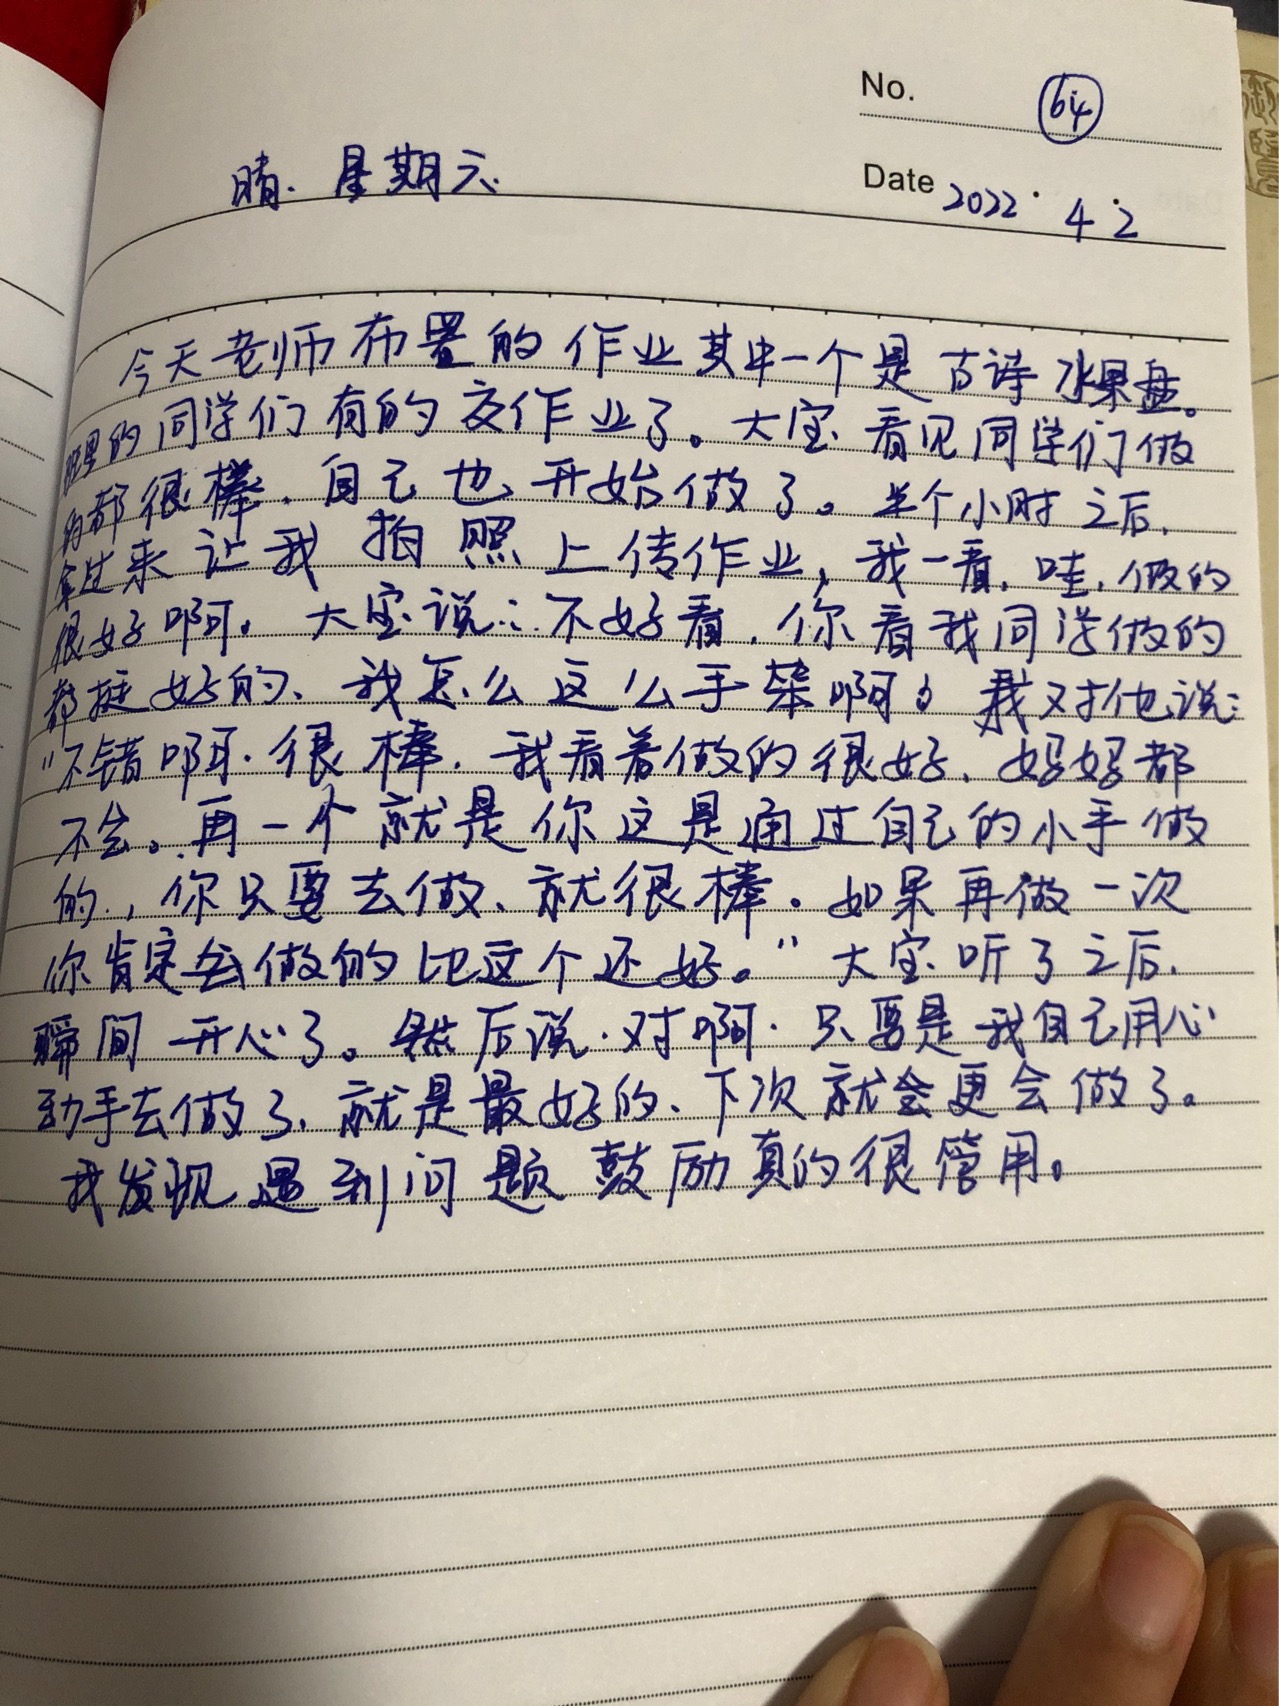 No. 64
晴. 星期六
Date 2022.4.2
今天老师布置的作业其中一个是古诗水果盘。
班里的同学们有的交作业了。大宝看见同学们做
的都很棒.自己也开始做了。半个小时之后.
拿过来让我拍照上传作业,我一看.哇.做的
很好啊。大宝说:不好看.你看我同学做的
都挺好的、我怎么这么手笨啊。我对他说:
“不错啊.很棒.我看着做的很好、妈妈都
不会。再一个就是你这是通过自己的小手做
的.,你只要去做、就很棒。如果再做一次
你肯定会做的比这个还好。”大宝听了之后.
瞬间开心了。然后说.对啊.只要是我自己用心
动手去做了、就是最好的、下次就会更会做了。
我发现遇到问题鼓励真的很管用。